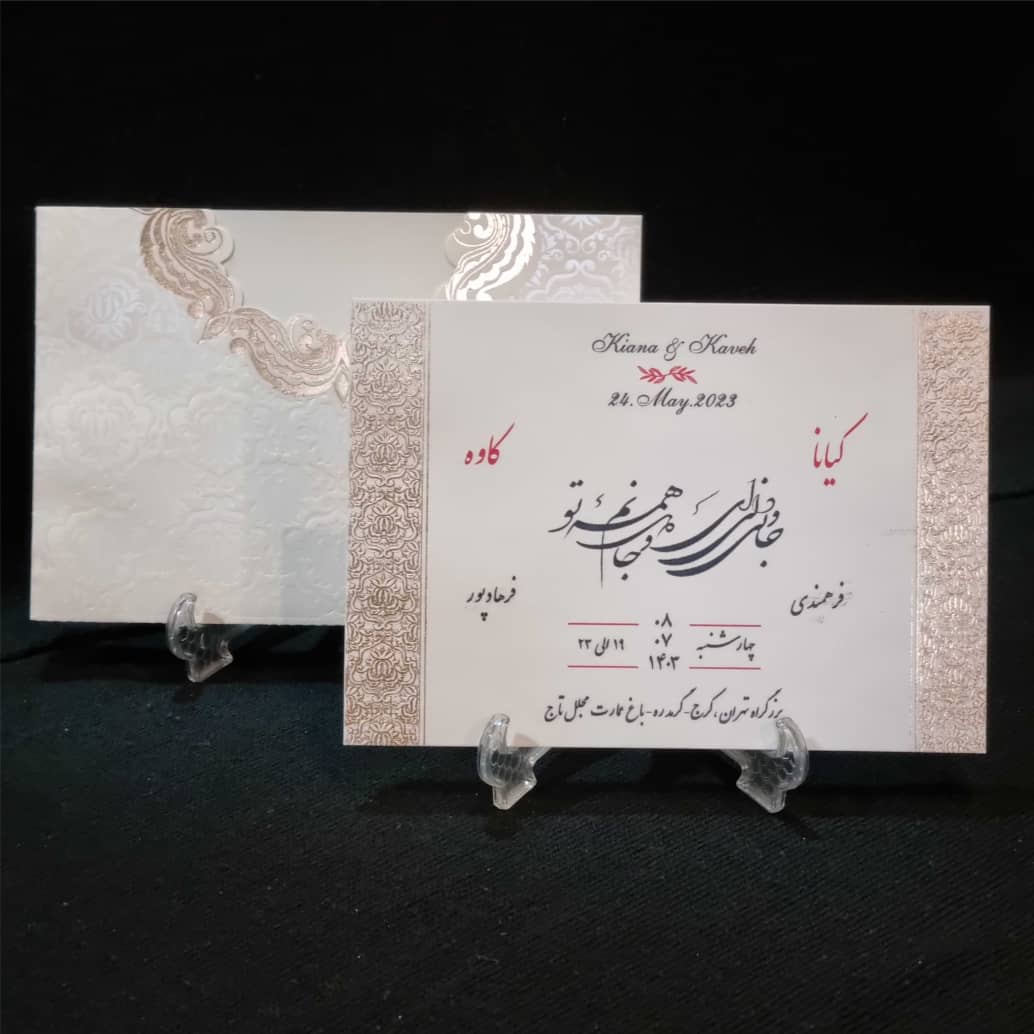 Kiana & Kaveh
24.May.2023
کیانا
کاوه
جان و دلی ای دل و جانم همه تو
فرهمندی
فرهادپور
چهارشنبه
۰۸
۰۷
۱۴۰۳
۱۹ الی ۲۳
بزرگراه تهران، کرج-گرمدره-باغ عمارت مجلل تاج